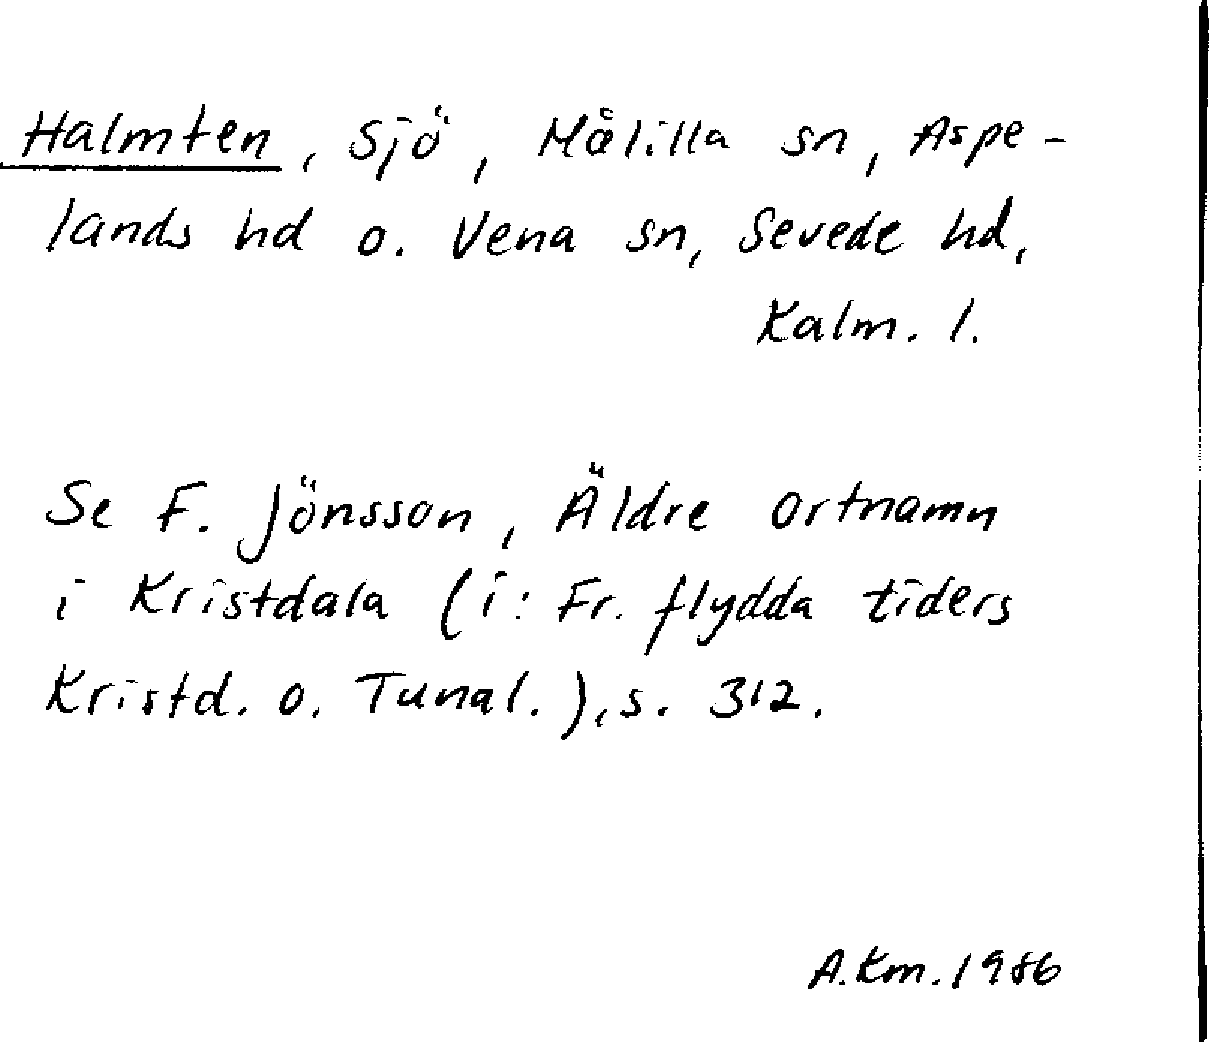 Halmten, sjö, Målilla sn, Aspe-
lands hd o. Vena sn, Sevede hd,
Kalm. l.
Se F. Jönsson, Äldre ortnamn
i Kristdala (i: Fr. flydda tiders
Kristd. o. Tunal.), s. 312.
A.Km. 1986